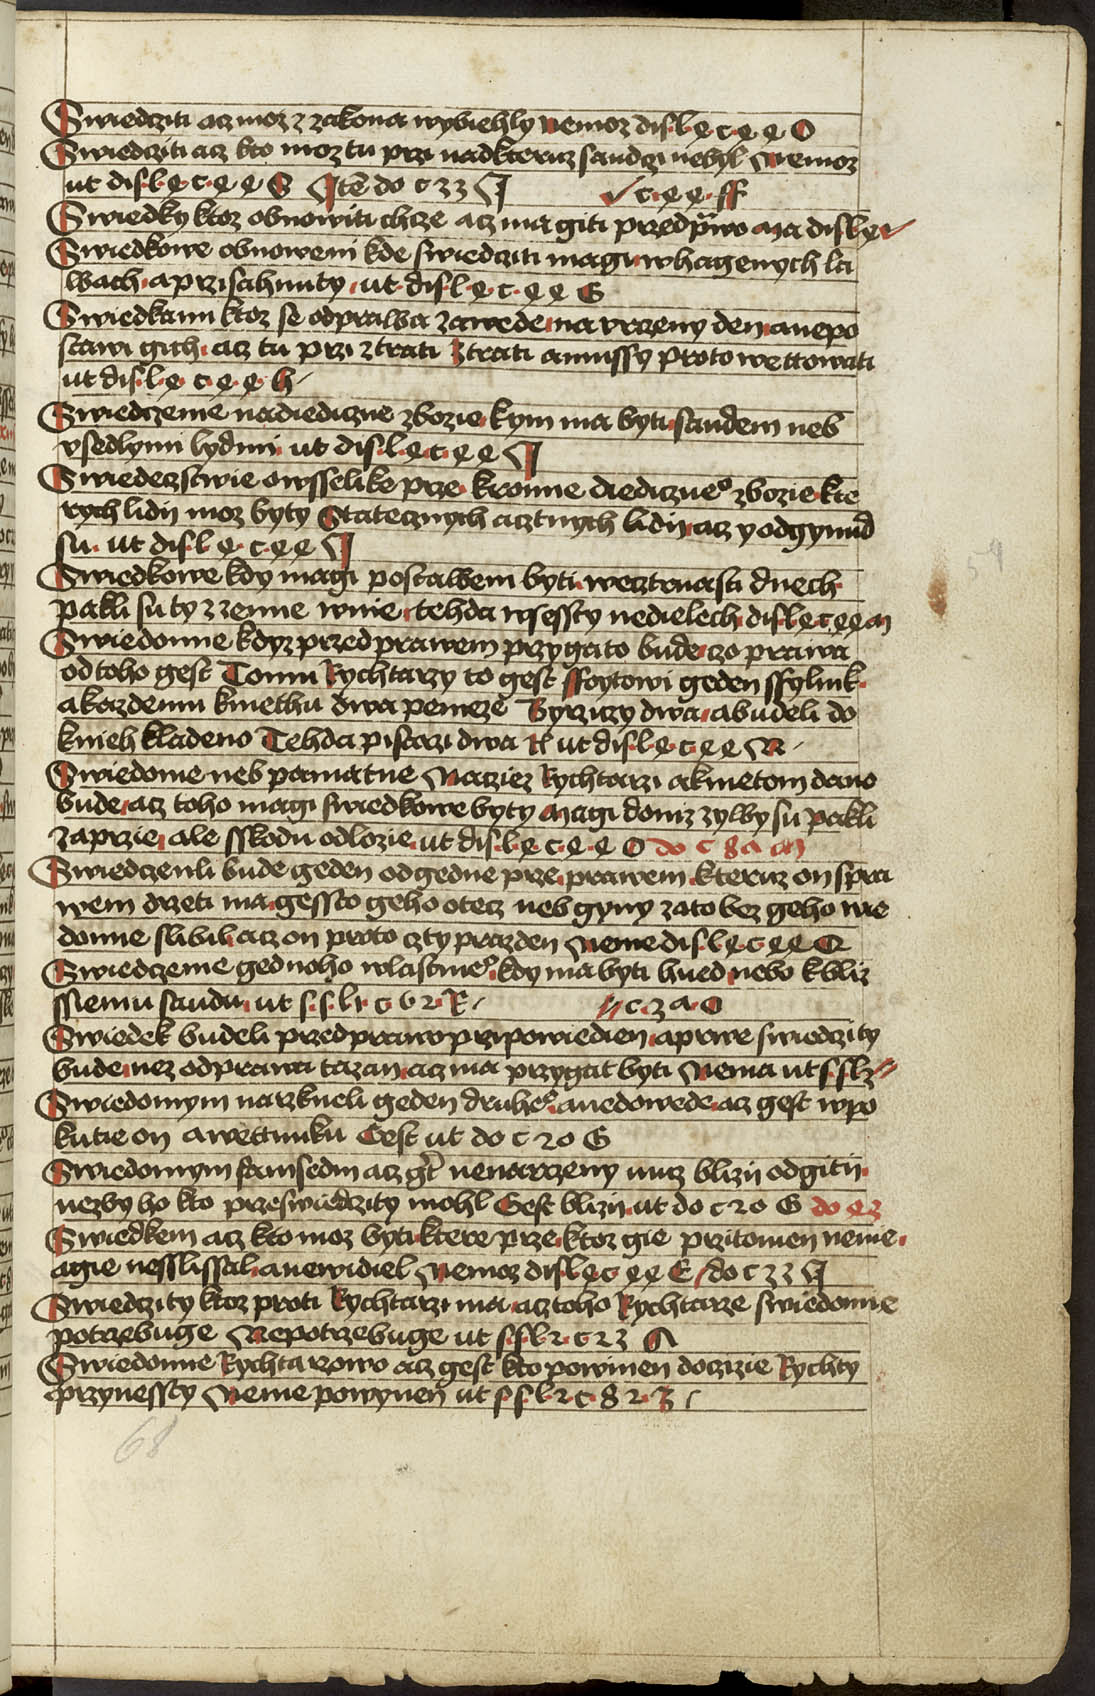 Swiedcziti acz moz z zakona wybiehly Nemoz dis·l·ȩ c·ȩ ȩ O
Swiedcziti acz kto moz tu przi nadkteruz saudczi nebyl Nemoz
ut dis·l·ȩ c·ȩ ȩ S Itē do c 33 I c·ȩ ȩ·ff
Swiedky ktoz obnowiti chcze acz ma giti przed p̄wo Ma dis l ȩ
Swiedkowe obnoweni kde swiedcziti magi whagenych la
wach aprzisahnuty ut dis·l·ȩ c·ȩ ȩ G
Swiedkami ktoz se odprawa zawede na vrczeny den anepo
stawi gich acz tu przi ztrati Ztrati a mussy proto wettowati
ut dis·l·ȩ c·ȩ·ȩ h
Swiedczenie nadiediczne zbozie kym ma byti saudem neb
vsedlymi lydmi ut dis·l·ȩ c·ȩ ȩ I
Swiedeczstwie owsselike prze kromie diediczneͦ zbozie kte
rych lidij moz byty Statecznych acztnych lidij acz yodgynud
su ut dis l ȩ·c·ȩ ȩ I
Swiedkowe kdy magi postaweni byti wecztrnasti dnech
pakli su ty z zemie winie tehda wssessty nedielech dis l ȩ c ȩ ȩ M
Swiedomie kdyz przed prawem przygato bude czo prawa
odtoho gest Tomu Rychtarzy to gest ffoytowi geden ssylink
akazdemu kmethu dwa penieze Byrziczy dwa abudeli do
knieh kladeno Tehda pisarzi dwa ut dis·l·ȩ c ȩ ȩ N
Swiedomie neb pamatne Nacziez Rychtarzi akmetom dano
bude acz toho magi swiedkowe byty Magi doniz zylby su pakli
zaprzie ale sskodu odlozie ut dis·l·ȩ c·ȩ·ȩ O do c 8 a m
Swiedczenli bude geden odgedne prze prawem kteruz on spra
wem drzeti ma gessto geho otecz neb gyny zato bez geho wie
domie slibil acz on proto czty prazden Neme dis l ȩ c ȩ ȩ Q
Swiedczenie gednoho wlastnieͦ kdy ma byti hned nebo kbliz
ssiemu saudu ut s·s·l r c 6 2 R c·3 a·O
Swiedek budeli przed prawo przipowiedien aprwe swiedczity
bude nez odprawa tazan acz ma przygat byti Nema ut s·s l z
Swiedomym narzkneli geden druheͦ anedowede acz gest wpo
kutie on awettunku Gest ut do c 20 G
Swiedomym samsedm acz g̅t nenarczeny muz blizij odgitij
nezby ho kto przeswiedczity mohl Gest blizij ut do c 20 G do ȩ z
Swiedkem acz kto moz byti ktere prze ktoz gie przitomen nenie
agie nesslissal anewidiel Nemoz dis l ȩ c ȩ ȩ E do c 33 I
Swiedczity ktoz proti Rychtarzi ma acz toho Rychtarze swiedomie
potrzebuge Nepotrzebuge ut s·s·l 2·c 23 A
Swiedomie Rychtarzowo acz gest kto powinen doczizie Rychty
przynessty Nenie powynen ut s·s·l 2 c·8 2·Z
68
59